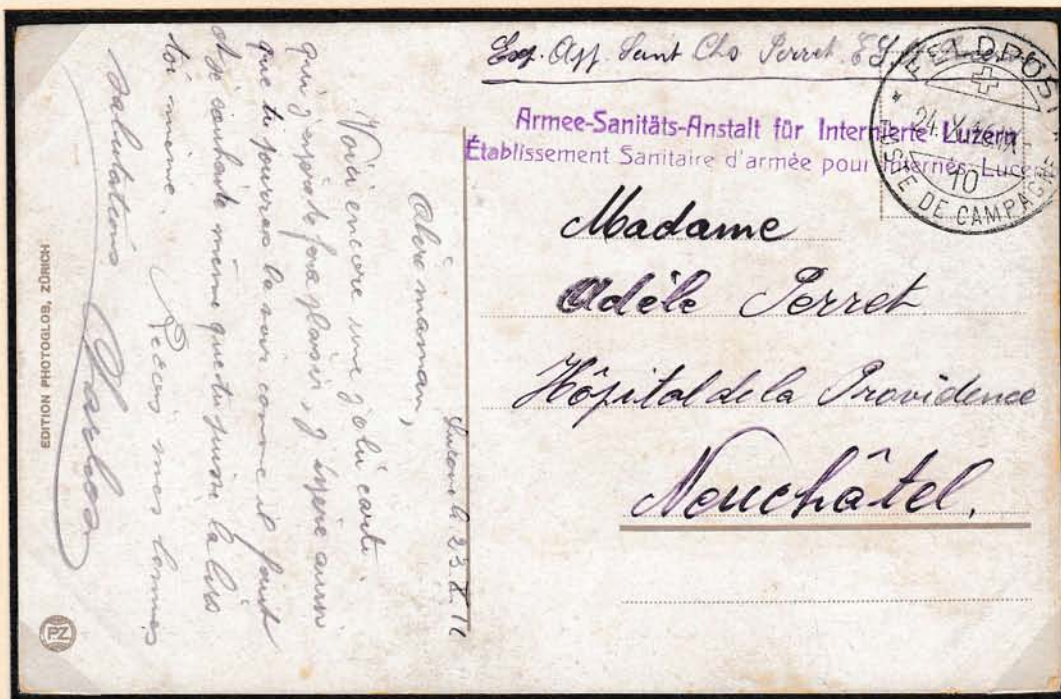 Exp. Off. Sanit Chs Perret E.S.A.
Armee-Sanitäts-Anstalt für Internierte Luzern
Établissement Sanitaire d'armée pour Internés Lucerne
FELDPOST
24.X.16
10
POSTE DE CAMPAGNE
Madame
Adèle Perret
Hôpital de la Providence
Neuchâtel.
23 X. 16
Chère maman,
Voici encore une jolie carte
qui j'espère fera plaisir, j'espère aussi
que tu pourras la suivre comme il faut
et je souhaite même que tu puisses la lire
toi même. Reçois mes bonnes
salutations
Charles
EDITION PHOTOGLOB, ZÜRICH
PZ